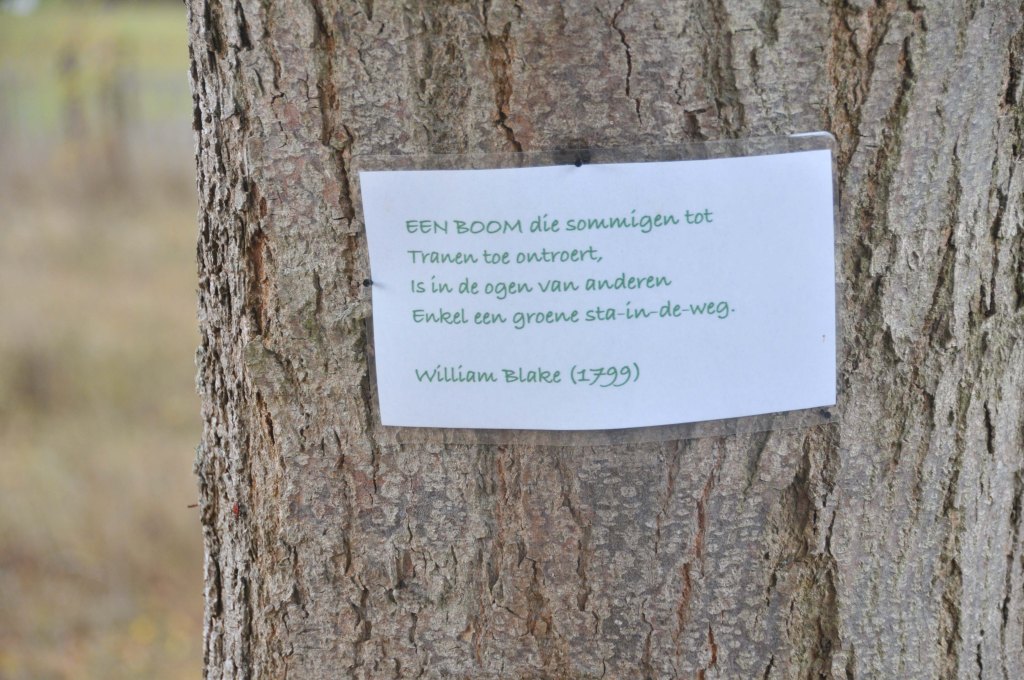 EEN BOOM die sommigen tot
Tranen toe ontroert,
Is in de ogen van anderen
Enkel een groene sta-in-de-weg.
William Blake (1799)